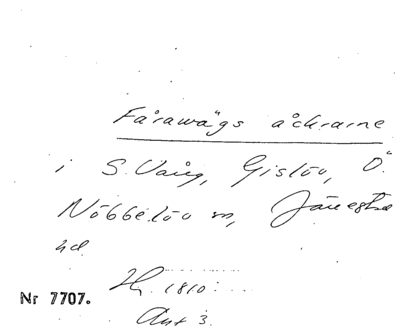 Fårawägs åckrarne
i S. Vång, Gislöv, Ö.
Nöbbelöv sn, Järrestad
hd
1810
Akt 3.
Nr 7707.